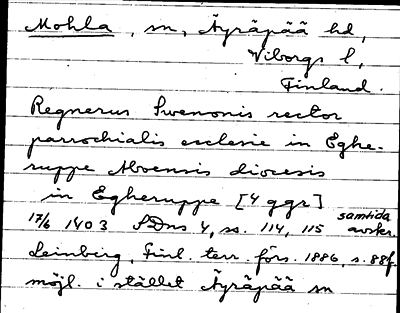 Mohla, sn, Äyräpää hd,
Viborgs l,
Finland.
Regnerus Swenonis rector
parrochialis ecclesie in Eghe-
ruppe Aboensis diocesis
in Egheruppe [4 ggr]
17/6 1403 SDns 1, ss. 114, 115 samtida avskr.
Leinberg, Finl. terr. förs. 1886, s. 88f.
möjl. i stället Äyräpää sn